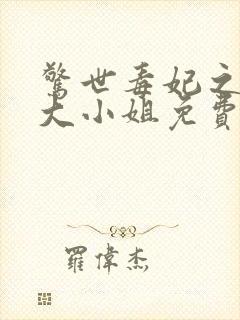 驚世毒妃之
大小姐免費
羅偉杰